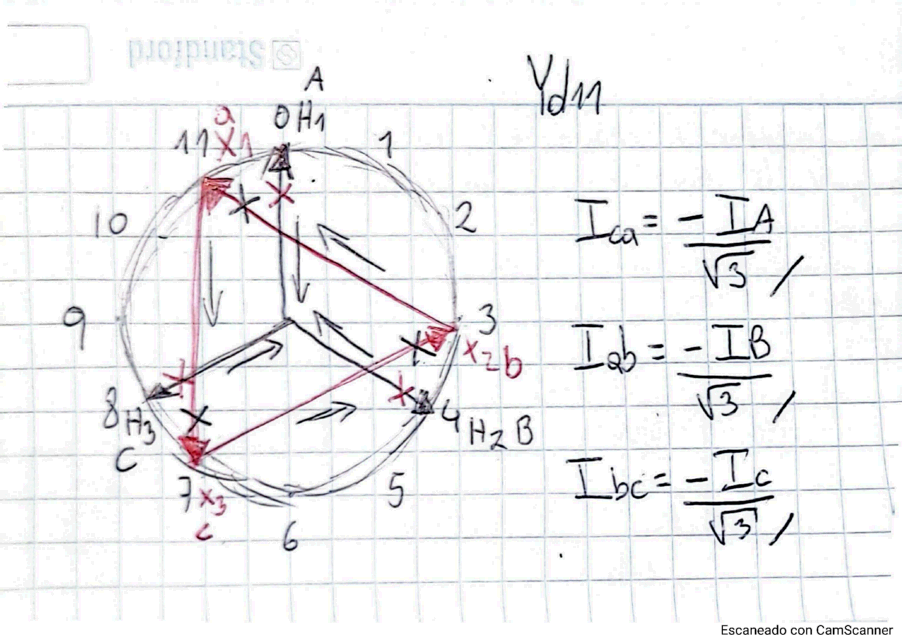 Standford
Yd11
A
a
11 X1
0 H1
1
10
2
9
3
X2 b
8
H3
C
4 H2 B
7 X3
c
5
6
Ica = -IA/√3
Iab = -IB/√3
Ibc = -Ic/√3
Escaneado con CamScanner